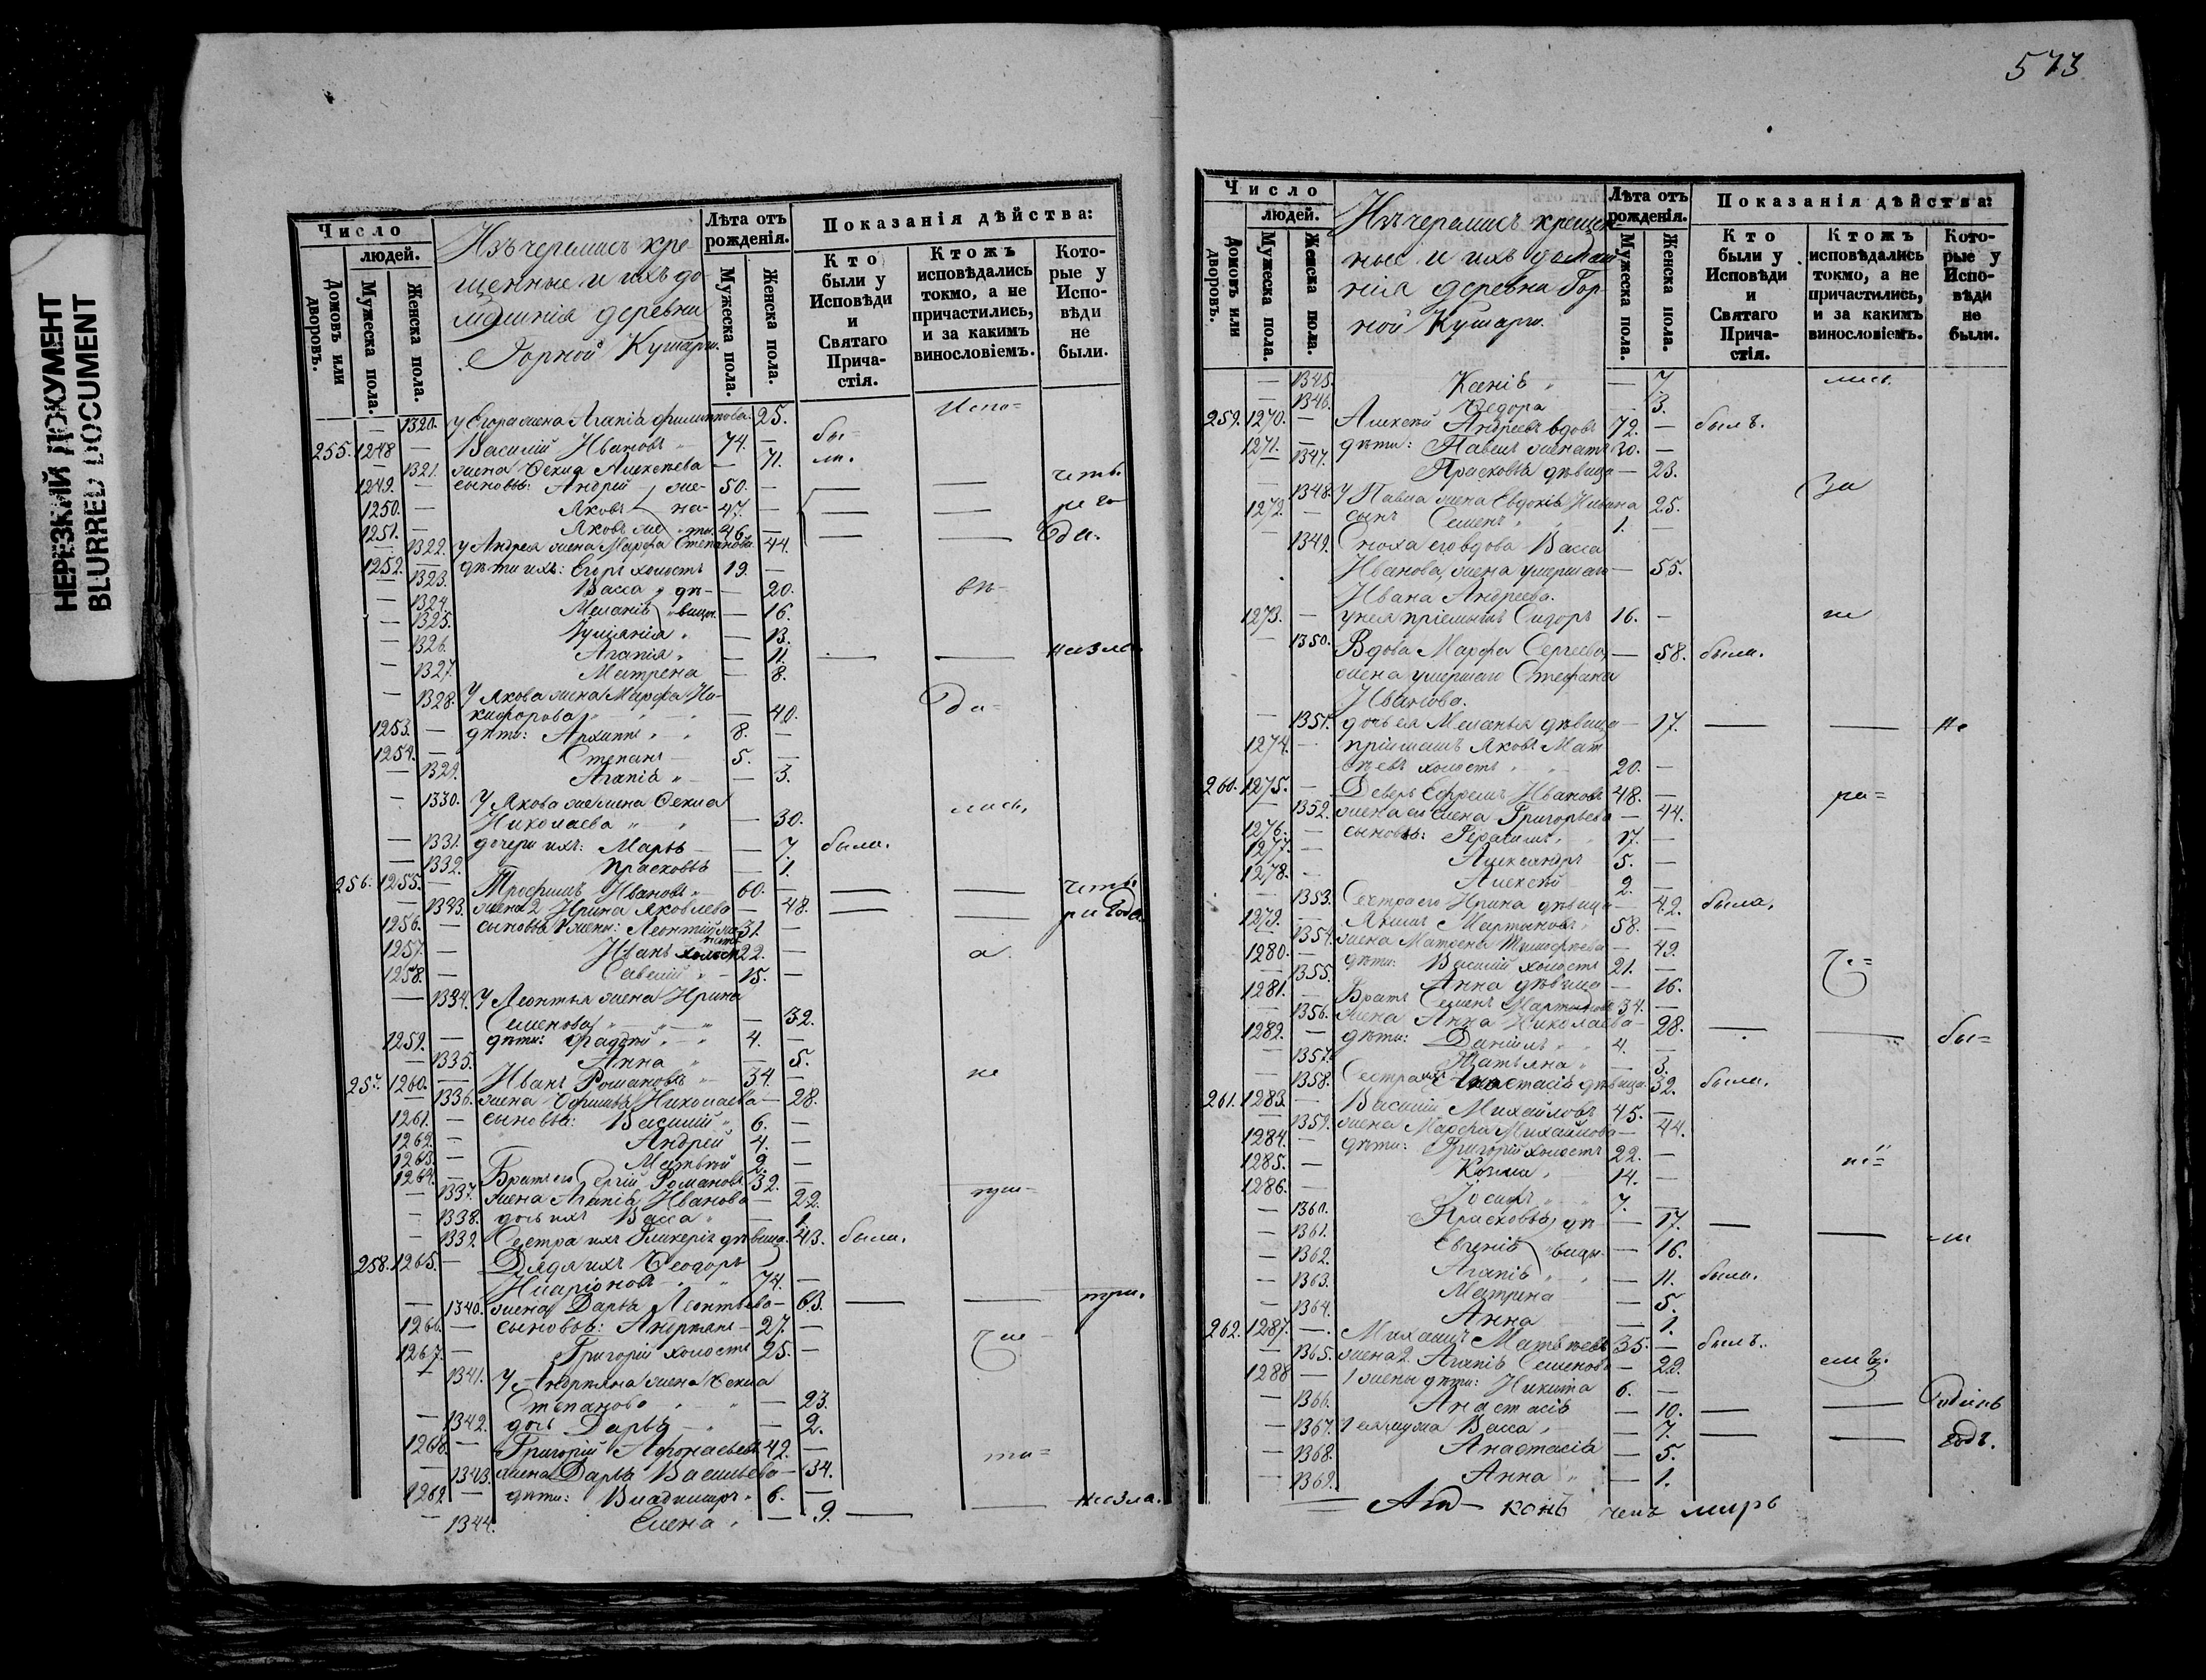 НЕРЕЗКИЙ ДОКУМЕНТ
BLURRED DOCUMENT
Число
людей.
Домовъ или дворовъ.
Мужеска пола.
Женска пола.
Изъ черемисъ кре-
щенные и ихъ до
машнія деревни
Горной Кушарги.
Лѣта отъ рожденія.
Мужеска пола.
Женска пола.
Показанія дѣйства:
Кто были у Исповѣди и Святаго Прича-стія.
Ктожъ исповѣдались токмо, а не причастились, и за какимъ винословіемъ.
Кото-рые у Испо-вѣди не были.
— 1320. у Егора жена Агапія Филиппова. 25. Испо=
255. 1248 — Василій Ивановъ 74. — бы-
— 1321. жена Фекла Алексѣева — 71. ли.
1249. — сыновья: Андрей же- 50. — — — четы
1250. — Яковъ на- 47. — — — ре го
1251. — Яковъ же ты. 46. — — — да.
— 1322. у Андрея жена Марфа Степанова 44.
1252. — дѣти ихъ: Егоръ холостъ 19. —
— 1323. Васса дѣ- — 20. вѣ-
— 1324. Меланія вицы — 16.
— 1325. — 13.
— 1326. Агапія — 11. — —
— 1327. Матрена — 8.
— 1328. У Якова жена Марфа Ни-
кифорова — 40. да=
1253. — дѣти: Архиппъ 8. —
1254. — Степанъ 5. —
— 1329. Агапія — 3.
— 1330. У Якова же жена Фекла
Николаева — 30. лись,
— 1331. дочери ихъ: Марья — 7. были.
— 1332. Прасковья — 1.
256. 1255. — Трофимъ Ивановъ 60. — — — четы
— 1333. жена 2 Ирина Яковлева — 48. — — ре года.
1256. — сыновья 1 жены: Леонтій же 31. —
натъ
1257. — Иванъ холостъ 22. — а
1258. — Савелій 15. —
— 1334. У Леонтья жена Ирина
Семенова — 32.
1259. — дѣти: Фаддей 4. —
— 1335. Анна — 5.
257. 1260. — Иванъ Романовъ 34. — не
— 1336. жена Офимья Николаева — 28.
1261. — сыновья: Василій 6. —
1262. — Андрей 4. —
1263. — Матвей 2. —
1264. — Братъ его Сергій Романовъ 32. —
— 1337. жена Агапія Иванова — 22.
— 1338. дочь ихъ Васса — 1.
— 1339. Сестра ихъ Гликерія дѣвица. 43. были.
258. 1265. — Дядя ихъ Феодоръ
Иларіоновъ 74. —
— 1340. жена Дарья Леонтьева — 63. — — три.
1266. — сыновья: Андреянъ 27. —
1267. — Григорій холостъ 25. —
— 1341. У Андреяна жена Фекла
Степанова — 23.
— 1342. дочь Дарья — 2.
1268. — Григорій Афонасьевъ 42. —
— 1343. жена Дарья Васильева — 34.
1269. — дѣти: Владимиръ 6. —
— 1344. Елена — 9. — —
573
Число
людей.
Домовъ или дворовъ.
Мужеска пола.
Женска пола.
Изъ черемисъ крещен-
ные и ихъ домаш
нія деревни Гор-
ной Кушарги.
Лѣта отъ рожденія.
Мужеска пола.
Женска пола.
Показанія дѣйства:
Кто были у Исповѣди и Святаго Прича-стія.
Ктожъ исповѣдались токмо, а не причастились, и за какимъ винословіемъ.
Кото-рые у Испо-вѣди не были.
— 1345. — 7.
— 1346. Федора — 3.
259. 1270. — Алексѣй Андреевъ вдовъ 72. — былъ.
1271. — дѣти: Павелъ женатъ 30. —
— 1347. Прасковья дѣвица — 23.
— 1348. У Павла жена Евдокія 25. За
1272. — сынъ Семенъ 1. —
— 1349. Сноха его вдова Васса
Иванова, жена умершаго — 55.
Ивана Андреева.
1273. — у нея пріемышъ Сидоръ 16. —
— 1350. Вдова Марфа Сергеева, — 58. были.
жена умершаго Стефана
Иванова.
— 1351. дочь ея Меланья дѣвица — 17. — — не
1274. — пріемышъ Яковъ Мат
вѣевъ холостъ 20. —
260. 1275. — Деверь Ефремъ Ивановъ 48. — ра=
— 1352. жена его Елена Григорьева — 44.
1276. — сыновья: Герасимъ 17. —
1277. — Александръ 5. —
1278. — Алексѣй 2. —
— 1353. Сестра его Ирина дѣвица — 42. была,
1279. — Мартыновъ 58. —
— 1354. жена Матрена Тимофѣева — 49.
1280. — дѣти: Василій холостъ 21. —
— 1355. Анна дѣвица — 16.
1281. — Братъ Семенъ Мартыновъ 34. —
— 1356. жена Анна Николаева — 28. — — бы=
1282. — дѣти: Даніилъ 4. —
— 1357. Татьяна — 3.
— 1358. Сестра ихъ Анастасія дѣвица. 32. были.
261. 1283. — Василій Михайловъ 45. —
— 1359. жена Марфа Михайлова — 44.
1284. — дѣти: Григорій холостъ 22. —
1285. — Козма 14. —
1286. — Іосифъ 7. —
— 1360. Прасковья дѣ — 17. — —
— 1361. Евгенія вицы. — 16.
— 1362. Агапія — 11. были.
— 1363. Матрена — 5.
— 1364. Анна — 1.
262. 1287. — Михаилъ Матвѣевъ 35. — былъ.
— 1365. жена 2. Агапія Семенова — 29.
1288 — 1 жены дѣти: Никита 6. —
— 1366. Анастасія — 10. — — одинъ
— 1367. 1 ея мужа Васса — 7. — — годъ.
— 1368. Анастасія — 5.
— 1369. Анна — 1.